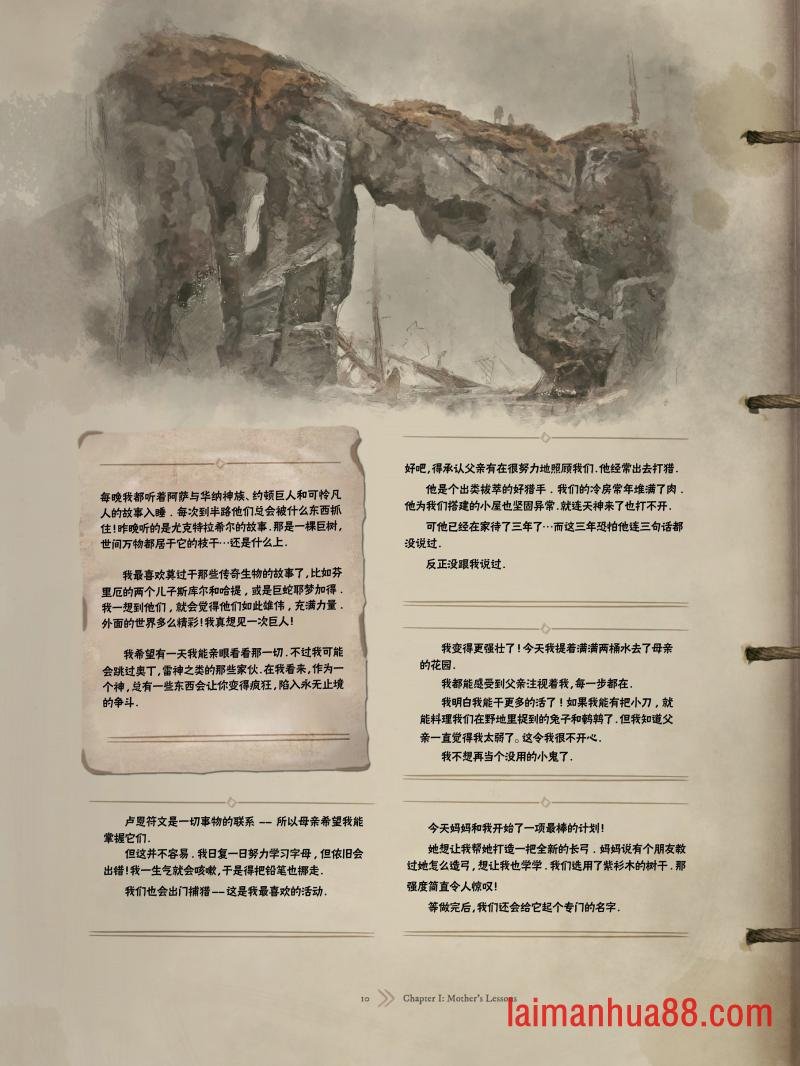 每晚我都听着阿萨与华纳神族、约顿巨人和可怜凡
人的故事入睡．每次到半路他们总会被什么东西抓
住!昨晚听的是尤克特拉希尔的故事.那是一棵巨树，
世间万物都居于它的枝干…还是什么上．
我最喜欢莫过于那些传奇生物的故事了,比如芬
里厄的两个儿子斯库尔和哈提，或是巨蛇耶梦加得．
我一想到他们，就会觉得他们如此雄伟，充满力量．
外面的世界多么精彩!我真想见一次巨人!
我希望有一天我能亲眼看看那一切.不过我可能
会跳过奥丁,雷神之类的那些家伙.在我看来,作为一
个神,总有一些东西会让你变得疯狂,陷入永无止境
的争斗．
卢恩符文是一切事物的联系 —— 所以母亲希望我能
掌握它们．
但这并不容易．我日复一日努力学习字母，但依旧会
出错!我一生气就会咳嗽,于是得把铅笔也挪走．
我们也会出门捕猎——这是我最喜欢的活动．
好吧,得承认父亲有在很努力地照顾我们.他经常出去打猎．
他是个出类拔萃的好猎手．我们的冷房常年堆满了肉．
他为我们搭建的小屋也坚固异常.就连天神来了也打不开．
可他已经在家待了三年了…而这三年恐怕他连三句话都
没说过．
反正没跟我说过．
我变得更强壮了!今天我提着满满两桶水去了母亲
的花园．
我都能感受到父亲注视着我,每一步都在．
我明白我能干更多的活了！如果我能有把小刀，就
能料理我们在野地里捉到的兔子和鹌鹑了.但我知道父
亲一直觉得我太弱了。这令我很不开心．
我不想再当个没用的小鬼了．
今天妈妈和我开始了一项最棒的计划!
她想让我帮她打造一把全新的长弓．妈妈说有个朋友教
过她怎么造弓,想让我也学学．我们选用了紫衫木的树干．那
强度简直令人惊叹!
等做完后,我们还会给它起个专门的名字．
10 Chapter I: Mother's Lessons
laimanhua88.com